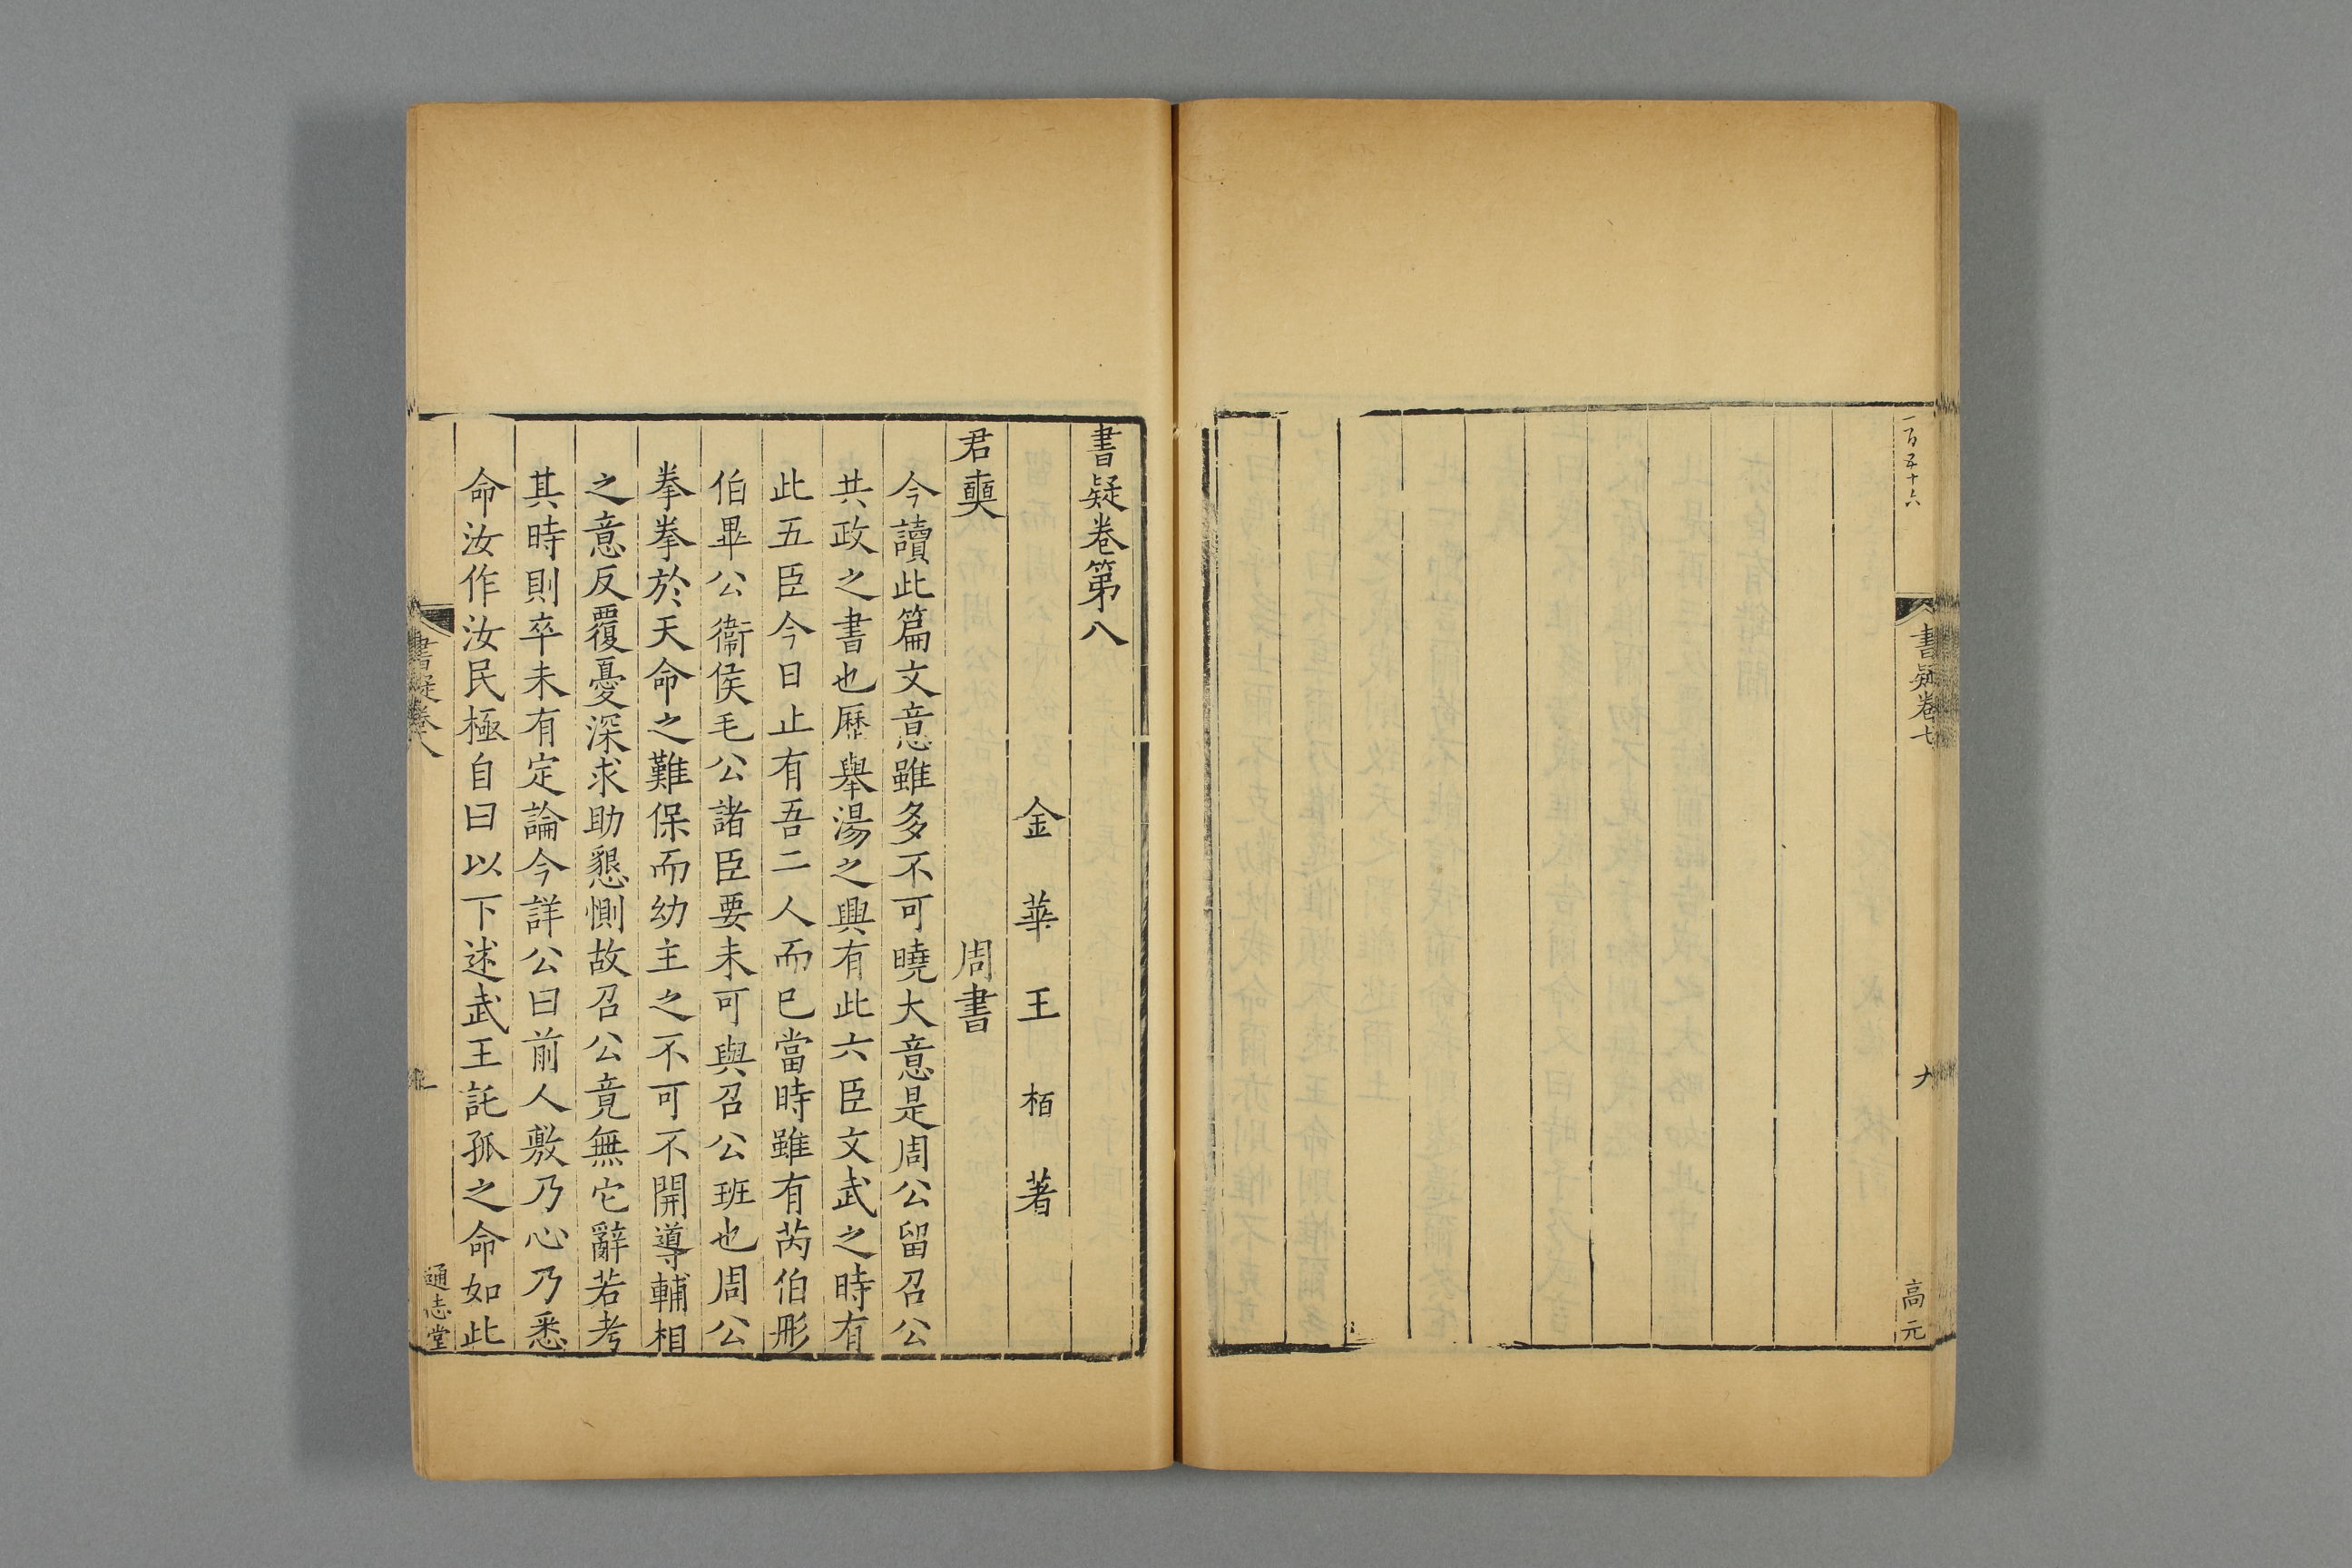 一百五十六
書疑卷七
九
高元
書疑卷第八
金華王柏著
君奭 周書
今讀此篇文意雖多不可曉大意是周公留召公
共政之書也歷舉湯之興有此六臣文武之時有
此五臣今日止有吾二人而已當時雖有芮伯彤
伯畢公衞侯毛公諸臣要未可與召公班也周公
拳拳於天命之難保而幼主之不可不開導輔相
之意反覆憂深求助懇惻故召公竟無它辭若考
其時則卒未有定論今詳公曰前人敷乃心乃悉
命汝作汝民極自曰以下述武王託孤之命如此
書疑卷八
一
通志堂